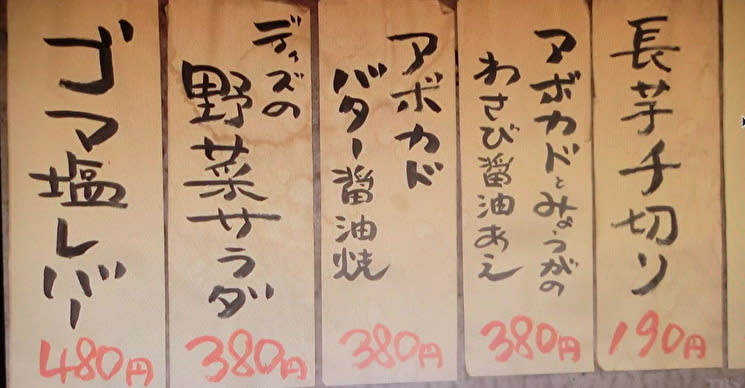 長芋千切り
190円
アボカドとみょうがの
わさび醤油あえ
380円
アボカド
バター醤油焼
380円
ディズの
野菜サラダ
380円
ゴマ塩レバー
480円